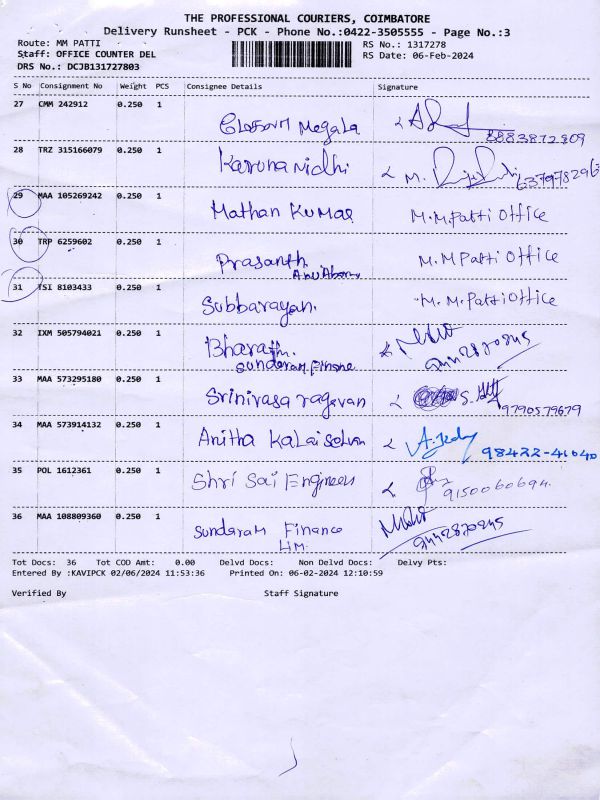 THE PROFESSIONAL COURIERS, COIMBATORE
Delivery Runsheet - PCK - Phone No.:0422-3505555 - Page No.:3
Route: MM PATTI RS No.: 1317278
Staff: OFFICE COUNTER DEL RS Date: 06-Feb-2024
DRS No.: DCJB131727803
S No Consignment No Weight PCS Consignee Details Signature
27 CMM 242912 0.250 1
Megala 8883872809
28 TRZ 315166079 0.250 1
Karunanidhi M. 6379782963
29 MAA 105269242 0.250 1
Mathan Kumar M.M.Patti Office
30 TRP 6259602 0.250 1
Prasanth M.M Patti Office
31 TSI 8103433 0.250 1
Subbarayan. M.M.Patti Office
32 IXM 505794021 0.250 1
Bharath.
Sundaram Finane
33 MAA 573295180 0.250 1
Srinivasa ragavan S.
9790579679
34 MAA 573914132 0.250 1
Anitha Kalaiselvan 98422-41040
35 POL 1612361 0.250 1
Shri Sai Engineers 9150060694.
36 MAA 108809360 0.250 1
Sundaram Finance
Tot Docs: 36 Tot COD Amt: 0.00 Delvd Docs: Non Delvd Docs: Delvy Pts:
Entered By :KAVIPCK 02/06/2024 11:53:36 Printed On: 06-02-2024 12:10:59
Verified By Staff Signature